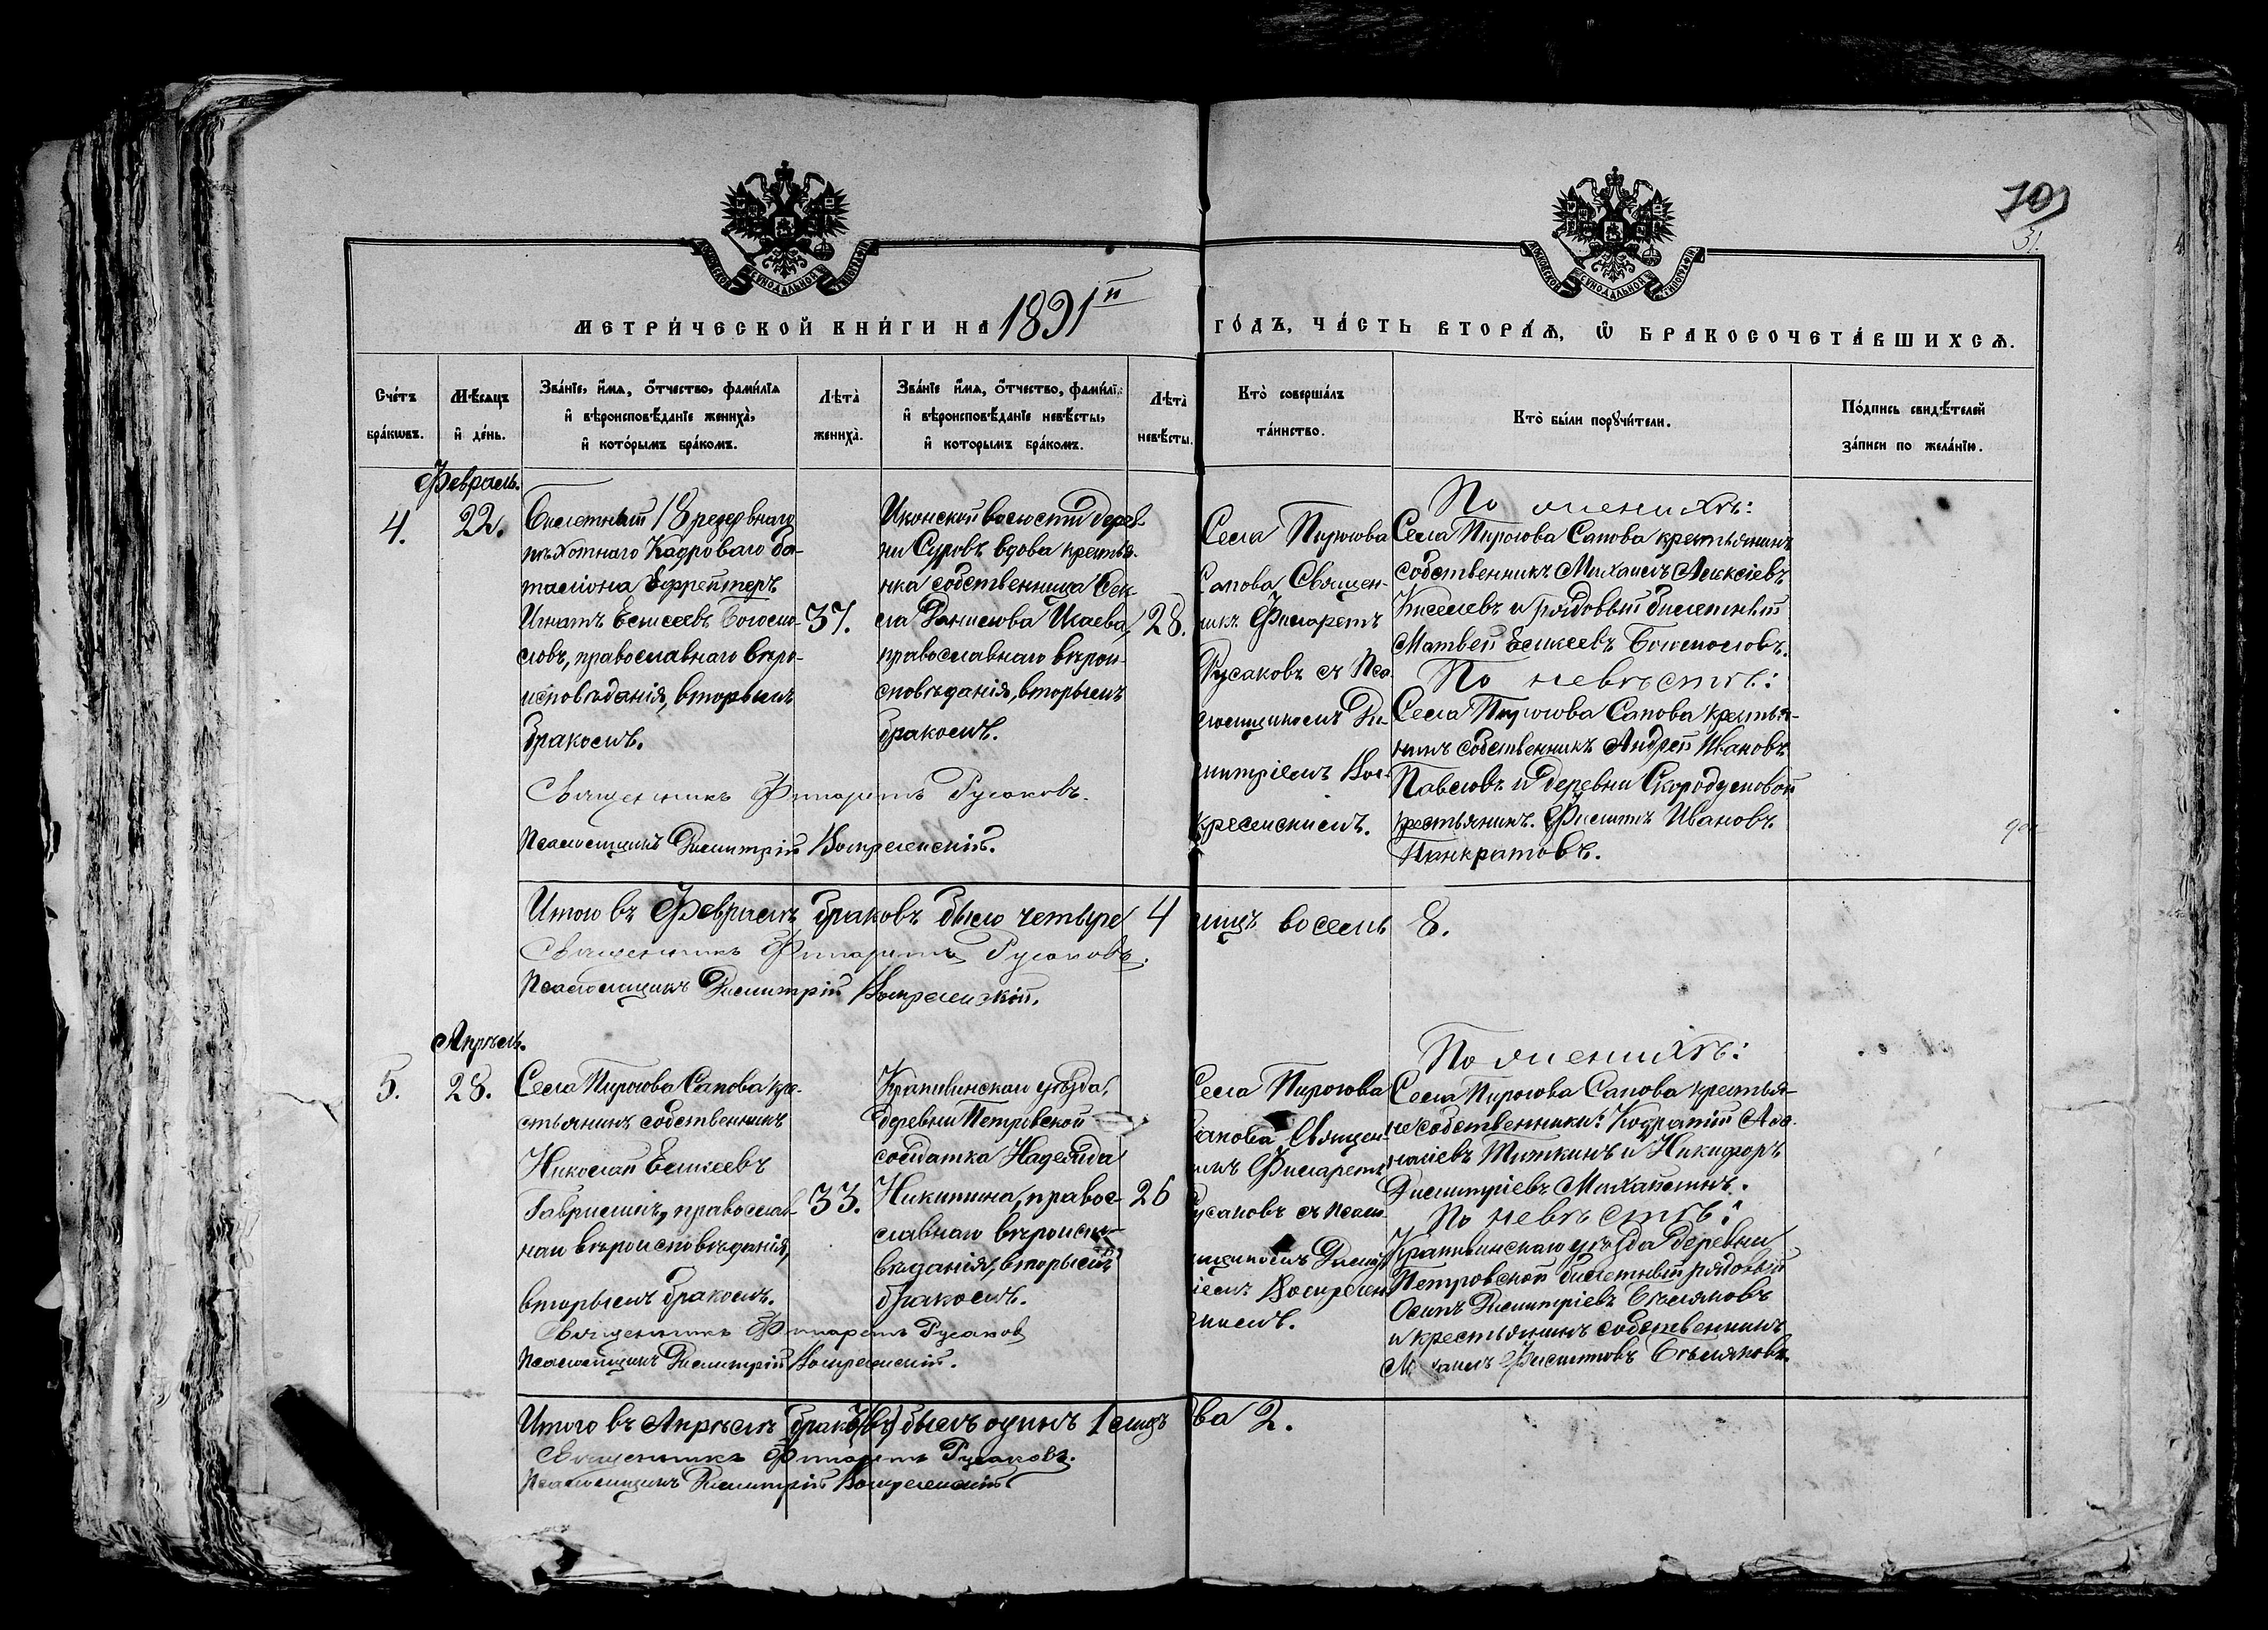 МЕТРИ́ЧЕСКОЙ КНИ́ГИ НА 1891й ГО́ДЪ, ЧА́СТЬ ВТОРА́Ѧ, Ѽ БРАКОСОЧЕТА́ВШИХСѦ.
Сче́тъ бра́кѡвъ.
Мѣ́сѧцъ и҆ де́нь.
Зва́нїе, и҆́мѧ, ѻ҆́тчество, фами́лїѧ
и҆ вѣроисповѣ́данїе жениха̀,
и҆ кото́рымъ бра́комъ.
Лѣта̀ жениха̀.
Зва́нїе и҆́мѧ, ѻ҆́тчество, фами́лїѧ
и҆ вѣроисповѣ́данїе невѣ́сты,
и҆ которымъ бра́комъ.
Лѣта̀ невѣ́сты.
Кто̀ соверша́лъ
та́инство.
Кто̀ бы́ли порꙋчи́тели.
По́дпись свидѣ́телей
за́писи по жела́нїю.
Февраль.
4.
22.
Билетный 18 резервнаго
пѣхотнаго Кадроваго ба-
таліона Ефрейтеръ
Игнатъ Елисеевъ Богомо-
ловъ, православнаго вѣро-
исповѣданія, вторымъ
бракомъ.
37.
Иконской волости дерев-
ни Суровъ вдова крестья-
нка собственница Фек-
ла Данилова Исаева,
православнаго вѣрои-
сповѣданія, вторымъ
бракомъ.
28.
Села Пирогова
Сапова Священ-
никъ Филаретъ
Русаковъ съ Пса-
ломщикомъ Ди-
митріемъ Вос-
кресенскимъ.
По женихѣ:
Села Пирогова Сапова крестьянинъ
собственникъ Михаилъ Алексіевъ
Киселевъ и рядовый билетный
Матвей Елисеевъ Богомоловъ.
По невѣстѣ:
Села Пирогова Сапова крестья-
нинъ собственникъ Андрей Ивановъ
Павловъ и деревни Скородумовой
крестьянинъ Филиппъ Ивановъ
Панкратовъ.
Священникъ Филаретъ Русаковъ.
Псаломщикъ Димитрій Воскресенскій.
Итого въ Февралѣ браковъ было четыре 4 лицъ восемь 8.
Священникъ Филаретъ Русаковъ.
Псаломщикъ Димитрій Воскресенскій.
Апрѣль.
5.
28.
Села Пирогова Сапова кре-
стьянинъ собственникъ
Николай Елисеевъ
Гавриловъ, православ-
наго вѣроисповѣданія,
вторымъ бракомъ.
33.
Крапивинскаго уѣзда,
деревни Петровской
солдатка Надежда
Никитина, право-
славнаго вѣроиспо-
вѣданія, вторымъ
бракомъ.
26
Села Пирогова
Сапова Священ-
никъ Филаретъ
Русаковъ съ Псало-
мщикомъ Димитр-
іемъ Воскресен-
скимъ.
По женихѣ:
Села Пирогова Сапова крестья-
не собственники: Кодратій
Титкинъ и Никифоръ
Димитріевъ
По невѣстѣ:
Крапивинскаго уѣзда деревни
Петровской билетный рядовый
Осипъ Димитріевъ Бѣляковъ
и крестьянинъ собственникъ
Михаилъ Филипповъ Бѣляковъ.
Священникъ Филаретъ Русаковъ
Псаломщикъ Димитрій Воскресенскій.
Итого въ Апрѣлѣ брако(въ) былъ одинъ 1 лицъ два 2.
Священникъ Филаретъ Русаковъ.
Псаломщикъ Димитрій Воскресенскій